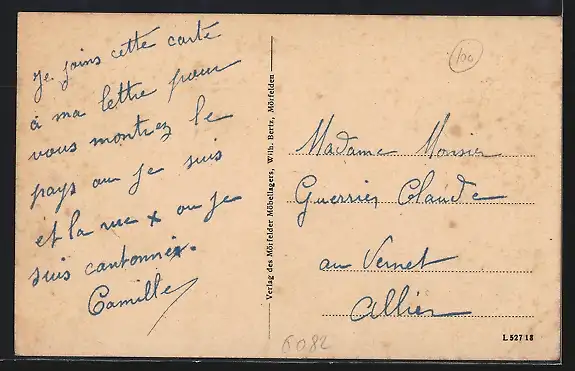 Je joins cette carte
à ma lettre pour
vous montrez le
pays ou je suis
et la rue x ou je
suis cantonnéx.
Camille
Verlag des Mörfelder Möbellagers, Wilh. Bertz, Mörfelden
100
Madame Monsier
Guerrier Claude
au Vernet
Allier
6082
L 52718